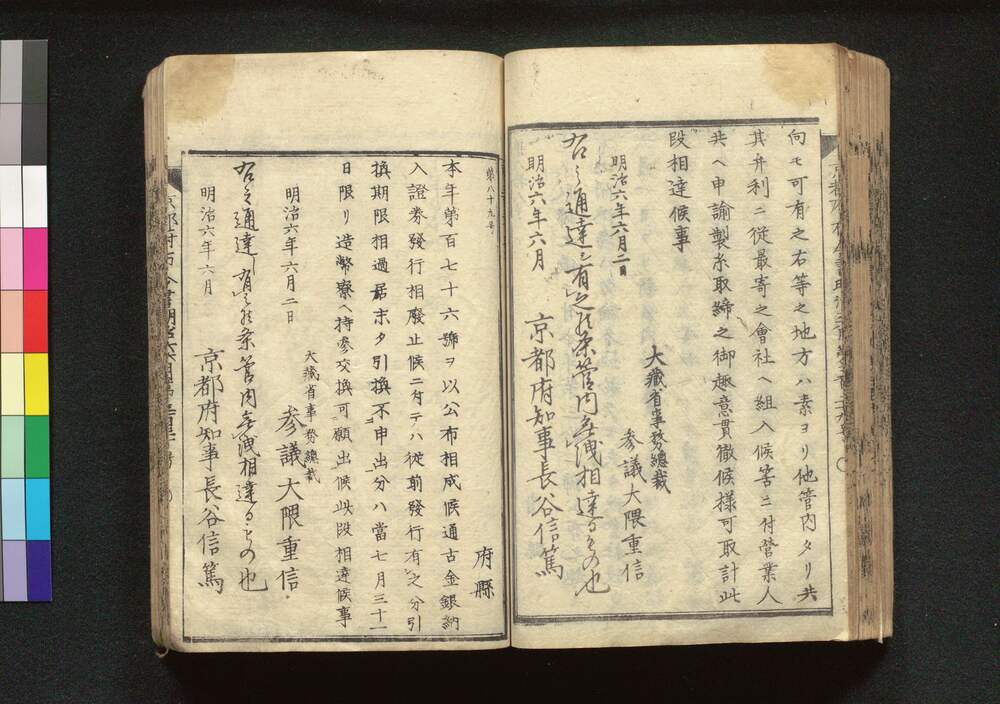 向モ可有之右等之地方ハ素ヨリ他管内タリ共
其弁利ニ従最寄之會社ヘ組入候筈ニ付営業人
共ヘ申諭製糸取締之御趣意貫徹候様可取計此
段相達候事
明治六年六月二日
大藏省事務總裁
参議大隈重信
右之通達シ有之候条管内無洩相達るもの也
明治六年六月
京都府知事長谷信篤
第八十九号
府縣
本年第百七十六號ヲ以公布相成候通古金銀納
入證券發行相廃止候ニ付テハ従前發行有之分引
換期限相過居末タ引換不申出分ハ當七月三十一
日限リ造幣寮ヘ持参交換可願出候此段相達候事
大藏省事務總裁
明治六年六月二日
参議大隈重信
右之通達シ有之候条管内無洩相達るもの也
明治六年六月
京都府知事長谷信篤